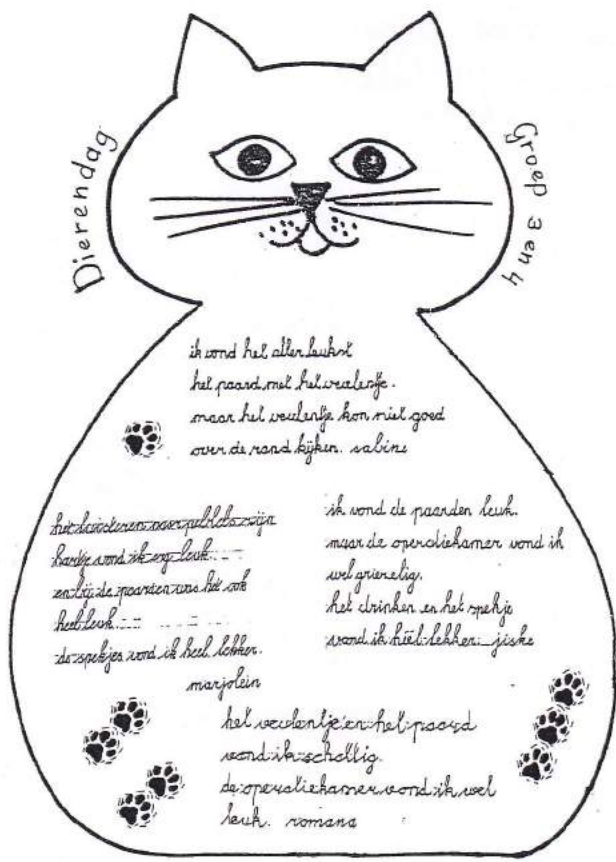 Dierendag
Groep 3 en 4
ik vond het aller leukst
het paard met het veulentje.
maar het veulentje kon niet goed
over de rand kijken. sabine
het luisteren naar zijn
hartje vond ik erg leuk
en bij de paarden was het ook
heel leuk
de spekjes vond ik heel lekker.
marjolein
ik vond de paarden leuk.
maar de operatiekamer vond ik
wel grieuelig.
het drinken en het spekje
vond ik héél lekker jiske
het veulentje en het paard
vond ik schattig.
de operatiekamer vond ik wel
leuk. romana